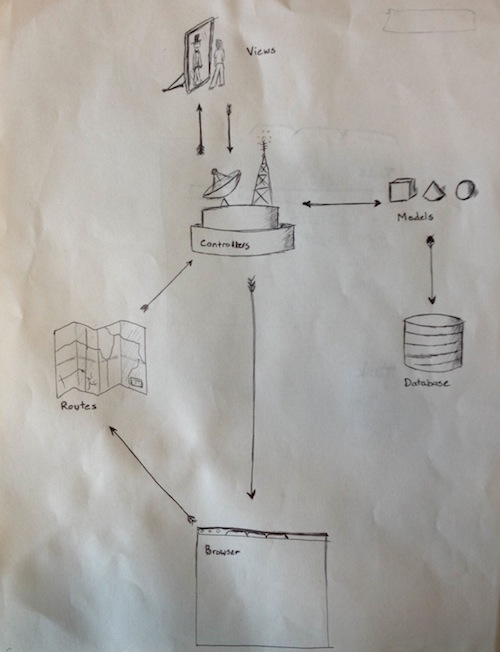 Views
Controllers
Models
Database
Routes
Browser